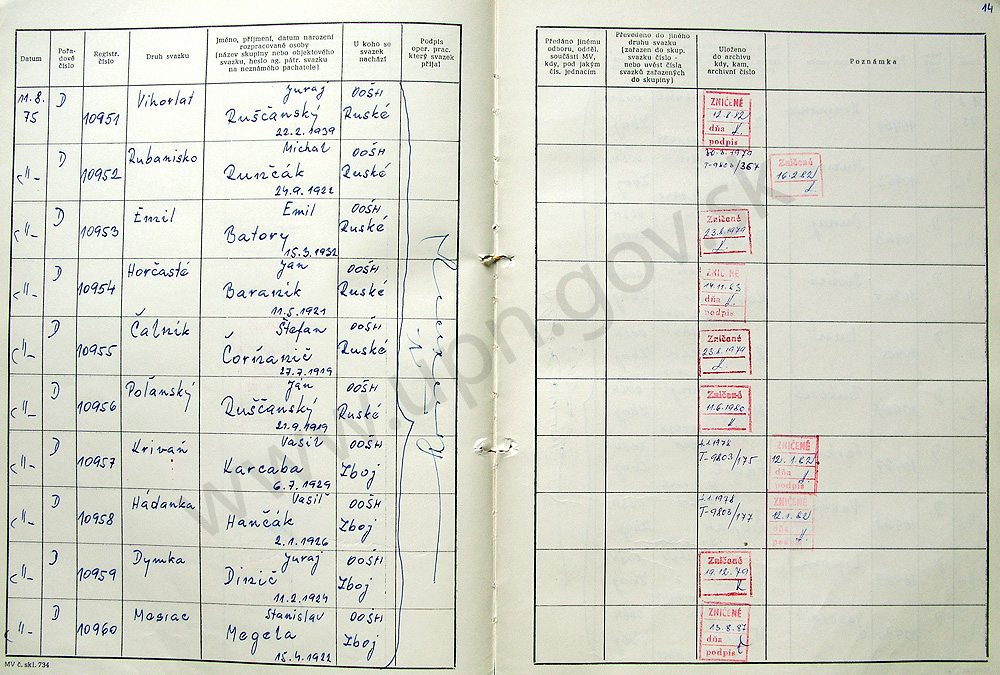 14
Datum
Pořadové číslo
Registr. číslo
Druh svazku
Jméno, příjmení, datum narození rozpracované osoby (název skupiny nebo objektového svazku, heslo ag. pátr. svazku na neznámého pachatele)
U koho se svazek nachází
Podpis oper. prac. který svazek přijal
Předáno jinému odboru, odděl. součásti MV, kdy, pod jakým čís. jednacím
Převedeno do jiného druhu svazku (zařazen do skup. svazku číslo - nebo uvést čísla svazků zařazených do skupiny)
Uloženo do archivu kdy, kam, archivní číslo
Poznámka
11.8. 75 D 10951 Vihorlat Juraj Ruščanský 22.2.1939 OOŠH Ruské
ZNIČENÉ dňa podpis
-"- D 10952 Rubanisko Michal Runčák 24.9.1922 OOŠH Ruské
T-9803/367
Zničené 16.2.82
-"- D 10953 Emil Emil Batory 15.3.1932 OOŠH Ruské
Zničené 23.8.1979
-"- D 10954 Horčasté Ján Baraník 11.5.1921 OOŠH Ruské
14.11.83 dňa podpis
-"- D 10955 Čalník Štefan Čorňanič 27.7.1919 OOŠH Ruské
Zničené 23.8.1979
-"- D 10956 Poľanský Ján Ruščanský 21.9.1919 OOŠH Ruské
Zničené 11.6.1980
-"- D 10957 Kriváň Vasil Karcaba 6.7.1929 OOŠH Zboj
1.1.1978 T-9803/175
ZNIČENÉ 12.1.82 dňa podpis
-"- D 10958 Hádanka Vasiľ Hančák 2.1.1926 OOŠH Zboj
1.1.1978 T-9803/177
ZNIČENÉ 12.1.82 dňa
-"- D 10959 Dymka Juraj Dinič 11.2.1924 OOŠH Zboj
Zničené 19.12.79
-"- D 10960 Mesiac Stanislav Megela 15.4.1922 OOŠH Zboj
ZNIČENÉ 13.8.87 dňa podpis
MV č. skl. 734
www.upn.gov.sk